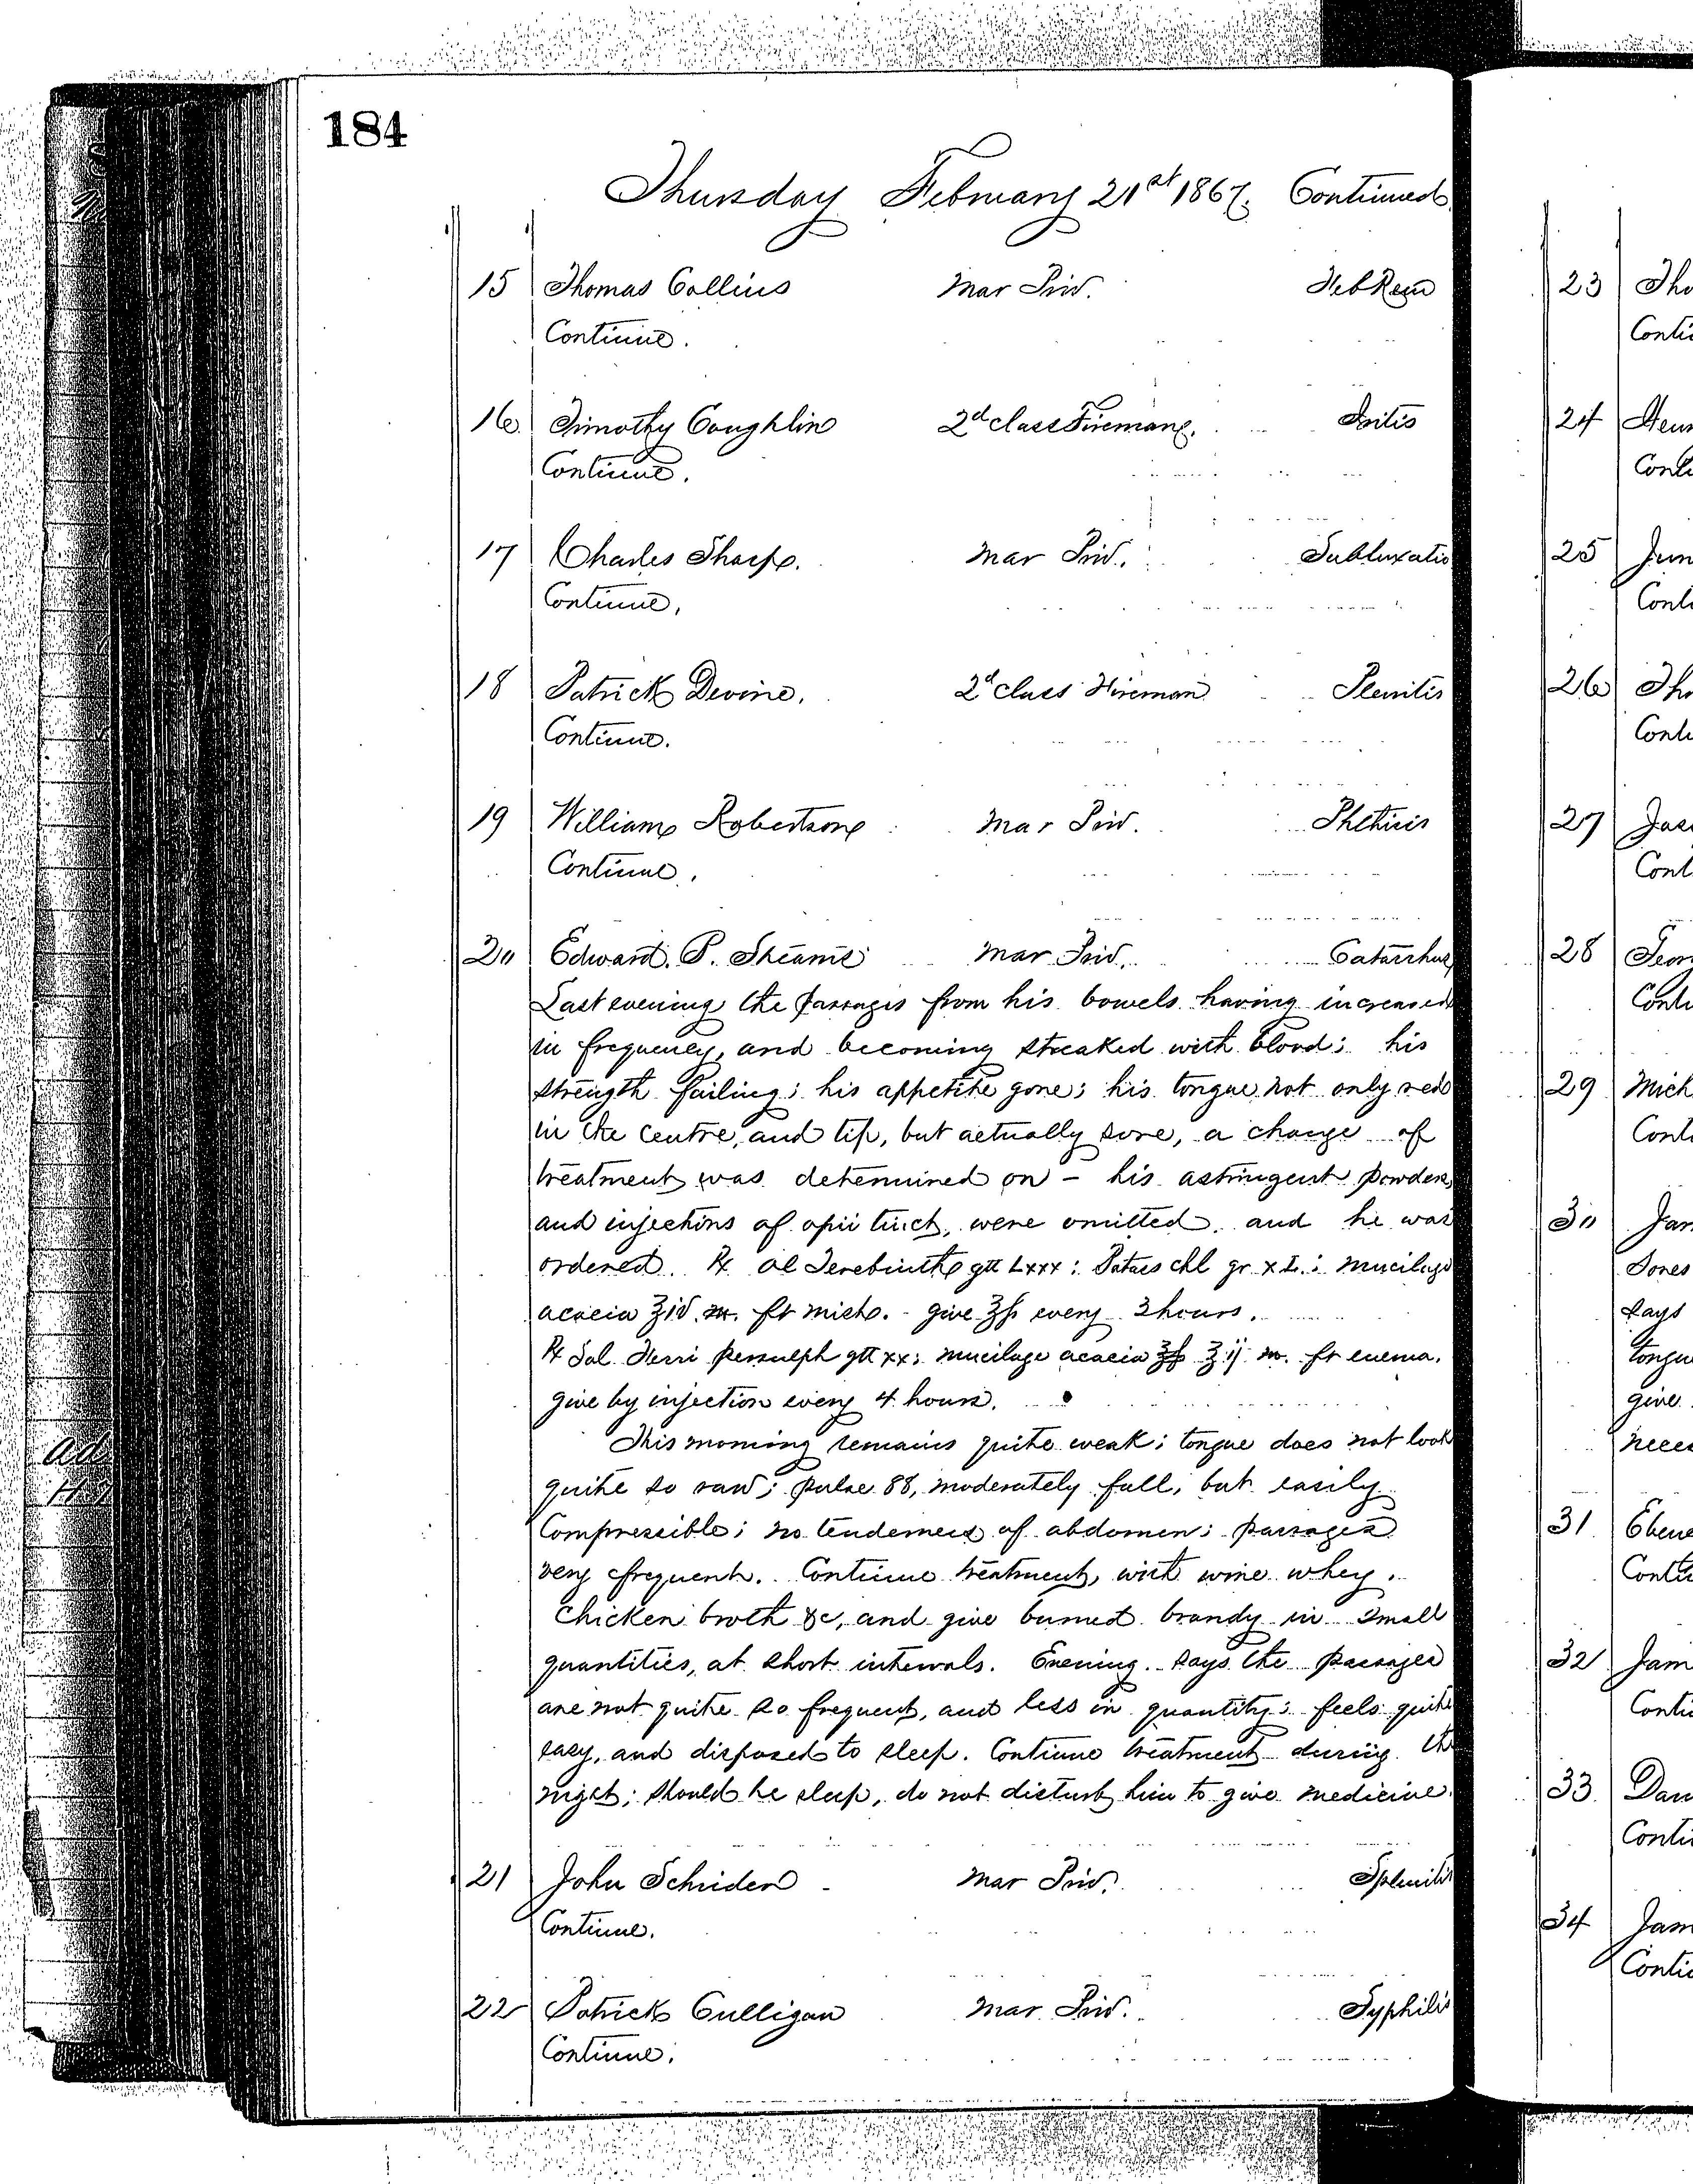 184
Thursday February 21st 1867. Continued
15 Thomas Collins Mar Priv. Feb Rem
Continue.
16 Timothy Coughlin 2d class Fireman. Iritis
Continue.
17 Charles Sharp. Mar Priv. Subluxatio
Continue.
18 Patrick Devine. 2d class Fireman Pleuritis
Continue.
19 William Robertson Mar Priv. Phthisis
Continue.
20 Edward. P. Stearns Mar Priv. Catarrhus
Last evening the passages from his bowels having increased
in frequency, and becoming streaked with blood; his
strength failing; his appetite gone; his tongue not only red
in the centre, and tip, but actually sore, a change of
treatment was determined on - his astringent powders,
and injections of opii tinct, were omitted. and he was
ordered. ℞ Ol Terebinth gtt Lxxx: Potass chl gr xL.: Mucilage
acacia ℥iv. m. ft mist. - give ℥ss every 2 hours.
℞ Sol. Ferri persulph gtt xx: mucilage acacia ℥ij m. ft enema.
give by injection every 4 hours.
This morning remains quite weak; tongue does not look
quite so raw; pulse 88, moderately full, but easily
Compressible; no tenderness of abdomen; passages
very frequent. Continue treatment, with wine whey.
Chicken broth &c, and give burned brandy in small
quantities, at short intervals. Evening. Says the passages
are not quite so frequent, and less in quantity; feels quite
easy, and disposed to sleep. Continue treatment during the
night; should he sleep, do not disturb him to give medicine.
21 John Schriden Mar Priv. Splenitis
Continue.
22 Patrick Culligan Mar Priv. Syphilis
Continue.
23 Tho
Conti
24 Hen
Cont
25
Cont
26 Tho
Cont
27
Cont
28
Conti
29 Mich
Cont
30 Jam
says
tongu
give
neces
31 Ebene
Conti
32 Jam
Conti
33 Dan
Conti
34 Jam
Conti